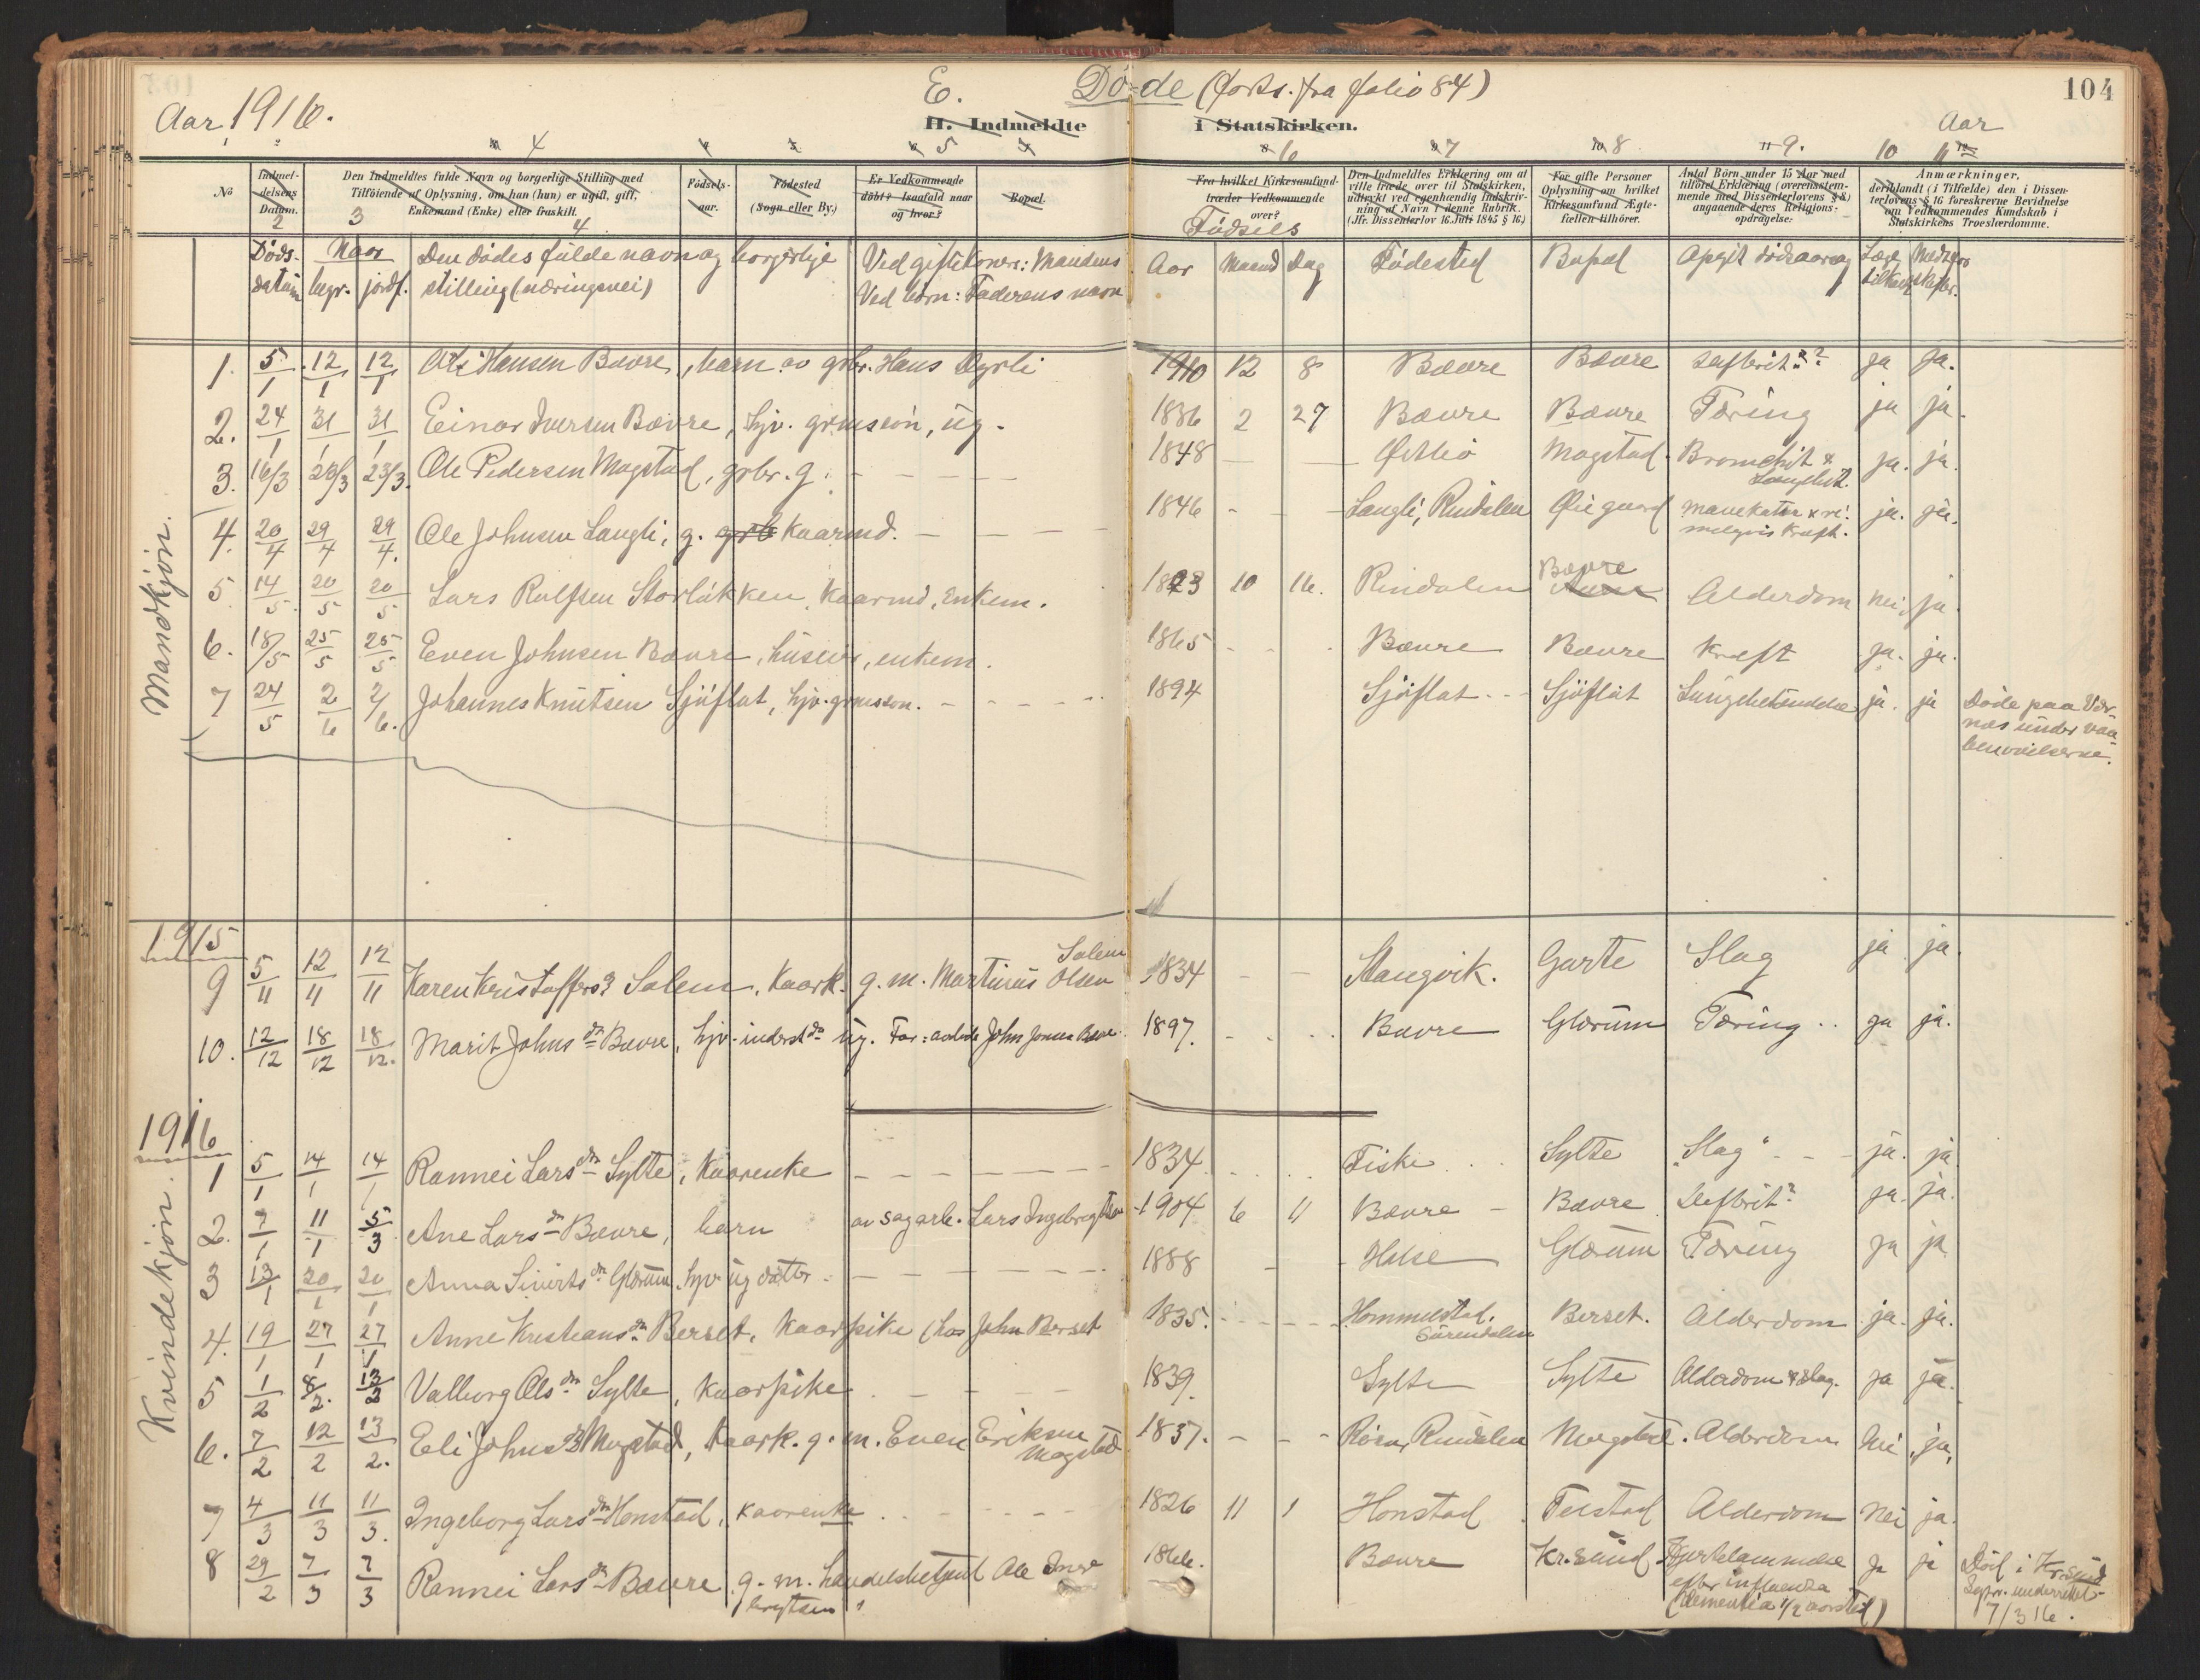 104
Aar 1916.
E. Døde (forts. fra folio 84)
H. Indmeldte i Statskirken.
Aar
4 5 6 7 8 9. 10 11
No
Indmeldelsens Datum.
Den Indmeldtes fulde Navn og borgerlige Stilling med Tilføiende af Oplysning, om han (hun) er ugift, gift, Enkemand (Enke) eller fraskilt.
Fødselsaar.
Fødested (Sogn eller By.)
Er Vedkommende døbt? Isaafald naar og hvor?
Bopæl.
Fra hvilket Kirkesamfund træder Vedkommende over?
Den Indmeldtes Erklæring om at ville træde over til Statskirken, udtrykt ved egenhændig Indskrivning af Navn i denne Rubrik. (Jfr. Dissenterlov 16 Juli 1845 § 16.)
For gifte Personer Oplysning om hvilket Kirkesamfund Ægtefællen tilhører.
Antal Børn under 15 Aar med tilføiet Erklæring (overensstemmende med Dissenterlovens § 8) angaaende deres Religionsopdragelse.
Anmærkninger, deriblandt (i Tilfælde) den i Dissenterlovens § 16 foreskrevne Bevidnelse om Vedkommendes Kundskab i Statskirkens Troeslærdomme.
2 3 4 Fødsels
Døds- Naar Den dødes fulde navn og borgerlige Ved gifte koner: Mandens Aar Maaned Dag Fødested Bopæl Opgit dødsaarsag Læge
datum begr. jordf. stilling (næringsvei) Ved børn: Faderens navn
Mandkjøn.
1. 5/1 12/1 12/1 Hansen Bævre, barn av grbr. Hans 1910 12 8 Bævre Bævre Difterit? ja ja.
2. 24/1 31/1 31/1 Einar Iversen Bævre, hjv. grmssøn, ug. 1886 2 27 Bævre Bævre Tæring ja ja.
3. 16/3 23/3 23/3. Ole Pedersen Mogstad, grbr. g. 1848 Mogstad. Bronchit & ja. ja.
4. 20/4 29/4 29/4. Ole Johnsen Langli, g. grb kaarmd. 1846 Langli, Rindalen Øiegaard Mavekatar ja. ja.
Kræft.
5 14/5 20/5 20/5 Lars Rolfsen Storløkken, kaarmd, Enkem. 1823 10 16. Rindalen Bævre Alderdom nei, ja
6. 18/5 25/5 25/5 Even Johnsen Bævre, husm, enkem. 1865 Bævre Bævre Kræft ja. ja.
7 24/5 2/6 2/6. Johannes Knutsen Sjøflot, hjv. grmssøn. 1894 Sjøflot Sjøflot Lungebetændelse ja. ja Døde paa Værnæs under vaabenøvelserne.
1915
9 5/11 12/11 12/11 Karen Kristoffersd Solem, Kaark. g. m. Martinus Olsen Solem 1834 Stangvik. Garte Slag ja ja.
10. 12/12 18/12 18/12. Marit Johnsdn Bævre, hjv. inderstdn ug. Far: avdøde John Jonsen Bævre. 1897. Bævre Glærum Tæring ja ja.
1916
Kvindekjøn.
1 5/1 14/1 14/1 Rannei Larsdn Sylte, Kaarenke 1834. Fiske Sylte "Slag" ja. ja
2. 7/1 11/1 5/3 Ane Larsdn Bævre, barn av sagarb. Lars Ingebrigtsen 1904 6 11 Bævre Bævre Difterit? ja. ja.
3 13/1 20/1 20/1 Anna Siverts dn Glærum, hjv. ug datter 1888 Halse Glærum Tæring ja ja
4. 19/1 27/1 27/1 Anne Kristiansdn Berset, Kaarpike (hos John Berset 1835. Hommelstad, Surendalen Berset. Alderdom ja. ja.
5 1/2 8/2. 13/2 Valborg Olsdn Sylte, Kaarpike 1839. Sylte Sylte Alderdom & slag. ja ja.
6. 7/2 12/2 13/2. Eli Johnsd Mogstad, Kaark. g. m. Even Eriksen Mogstad 1837. Rindalen Mogstad. Alderdom Nei, ja,
7 4/3 11/3 11/3. Ingeborg Larsdn Honstad, Kaarenke 1826 11 1 Honstad Telstad Alderdom Nei ja.
8 29/2 7/3 7/3 Rannei Larsdn Bævre g. m. handelsbetjent Ole Ingebrigtsen 1866. Bævre Kr.sund Hjertelammelse efter influenza (Dementia 1/2 aarstid) ja ja Død i Kr.sund
7/3 16.